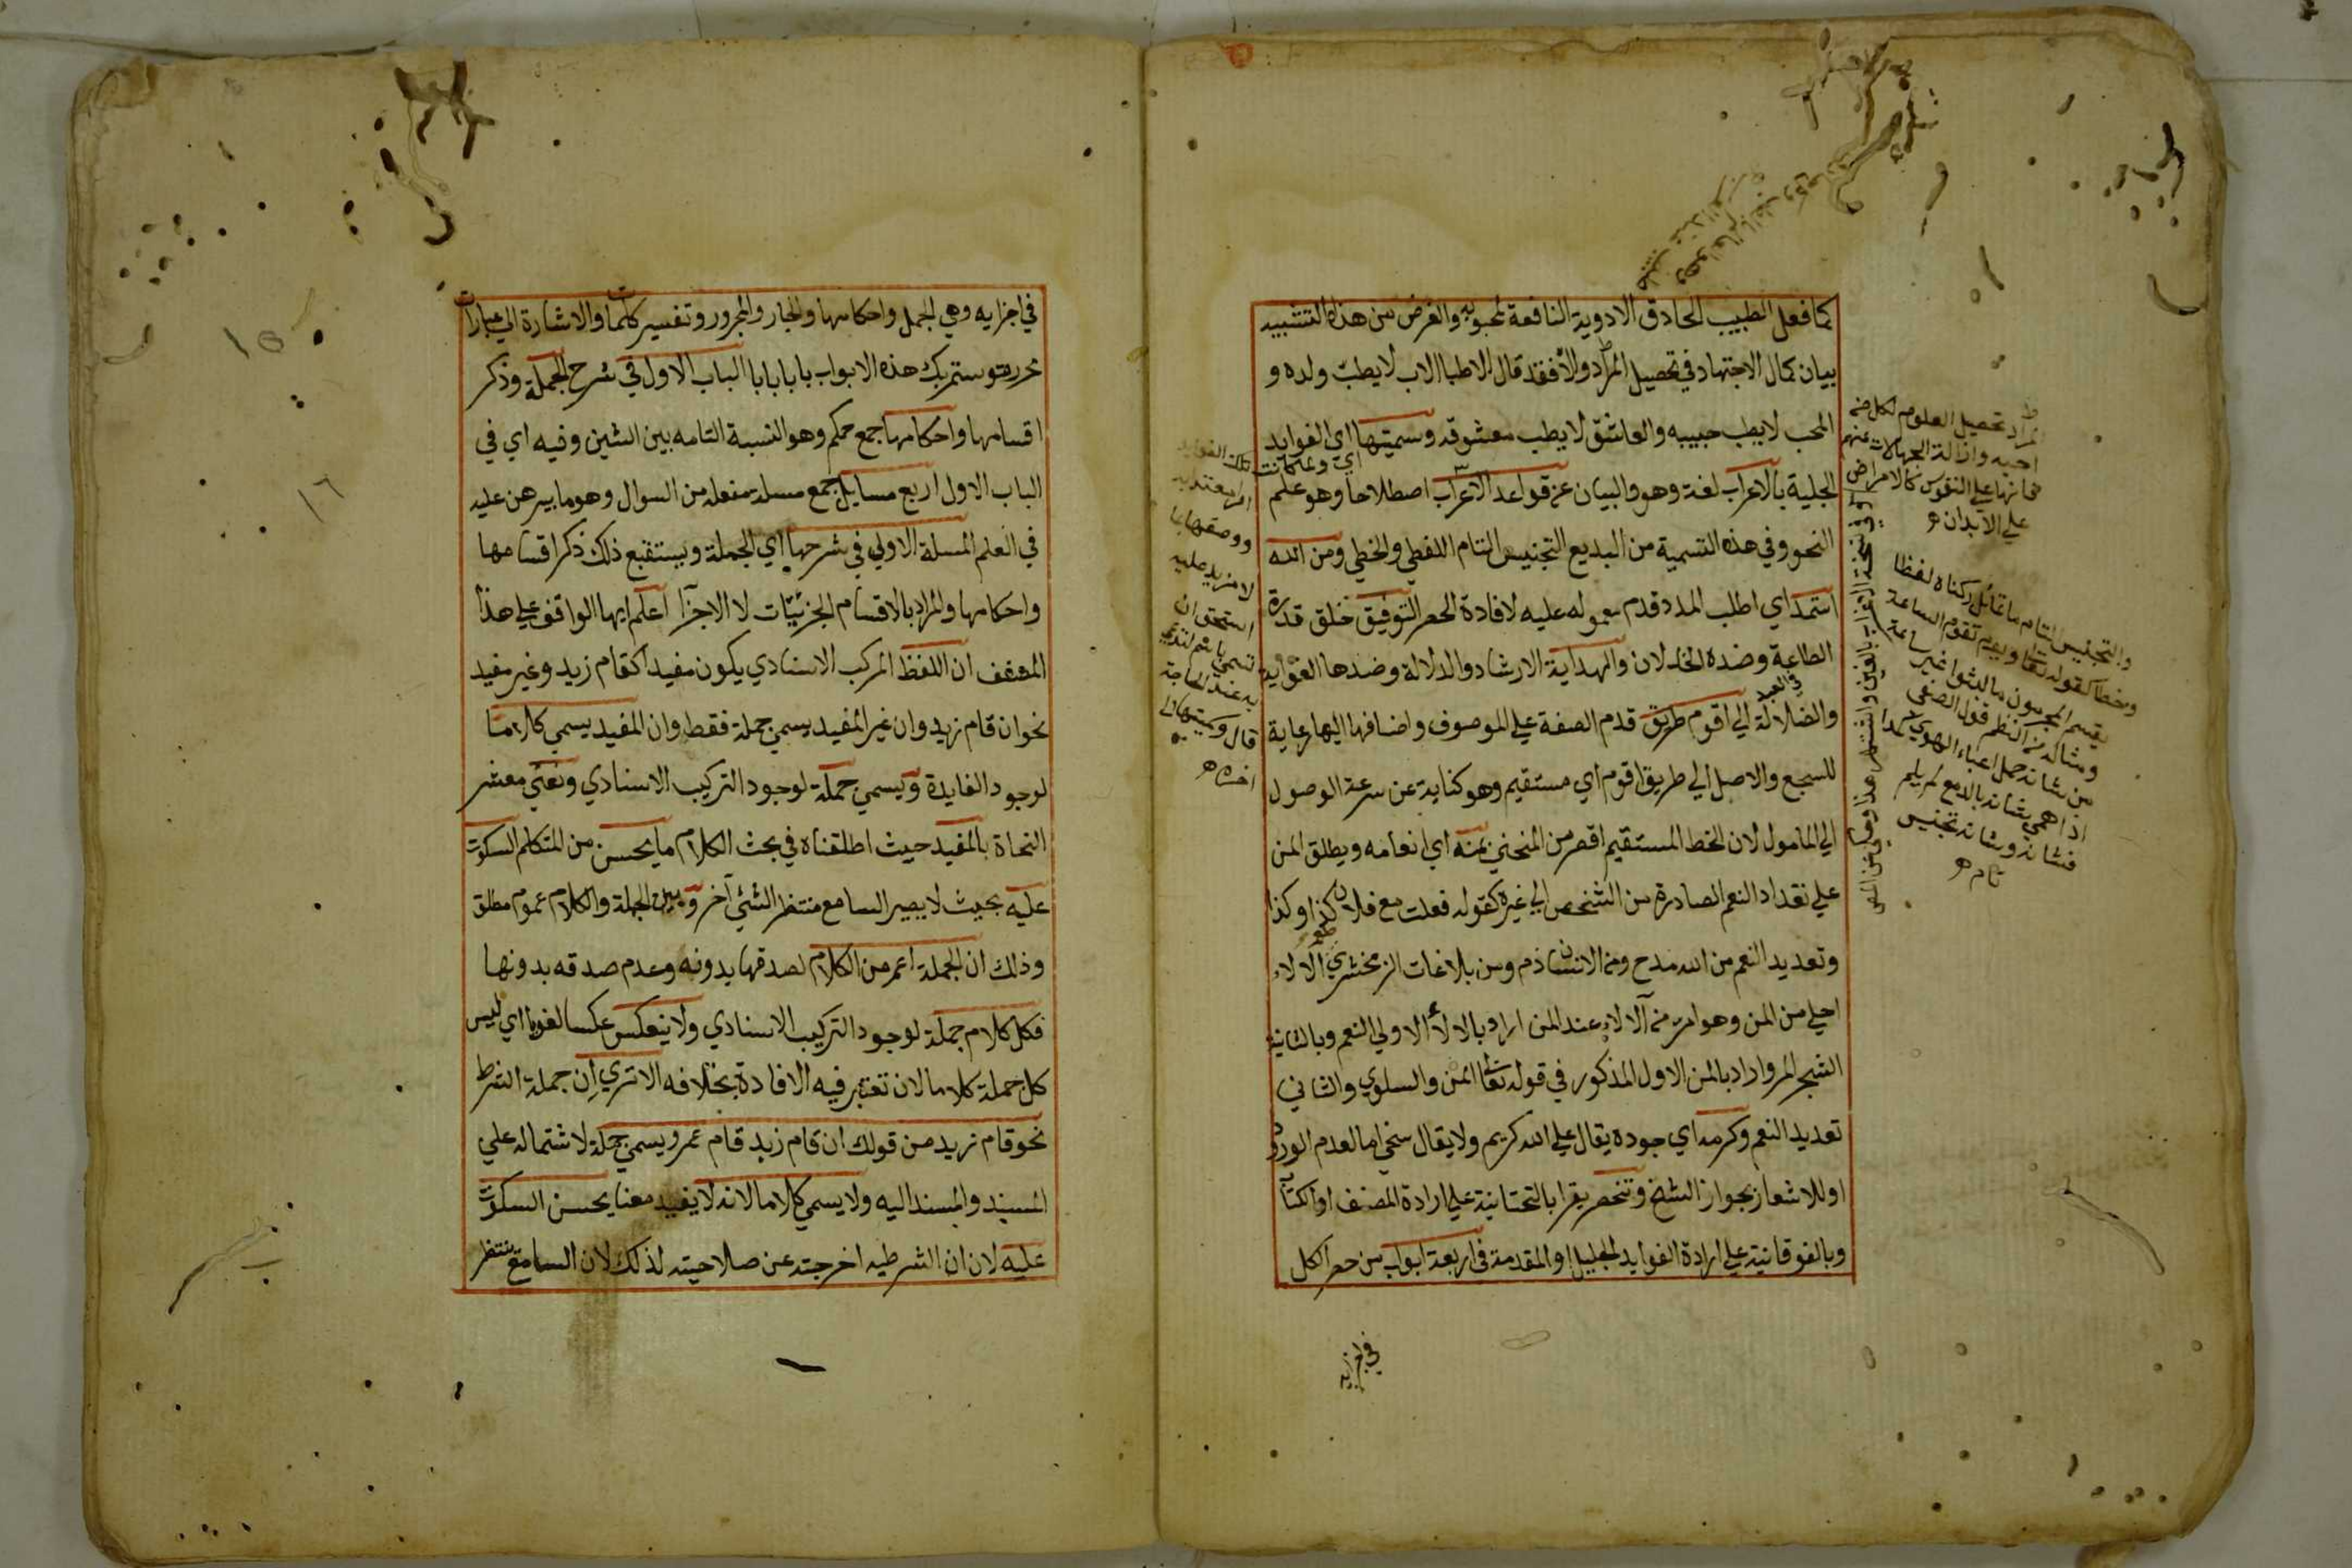 كما فعل الطبيب الحاذق الادوية النافعة لمحبوبه والغرض من هذا التشبيه
بيان كمال الاجتهاد في تحصيل المراد والا فقد قال الاطبا الاب لا يطب ولده و
المحب لا يطب حبيبه والعاشق لا يطب معشوقه وسميتها اي الفوايد
الجلية بالاعراب لغة وهو والبيان عن قواعد الاعراب اصطلاحا وهو علم
النحو وفي هذه التسمية من البديع التجنيس التام اللفظي والخطي ومن الله
استمد اي اطلب المدد قدم معموله عليه لافادة الحصر التوفيق خلق قدرة
الطاعة وضده الخذلان والهداية الارشاد والدلالة وضدها الغواية
والضلالة الي اقوم طريق قدم الصفة علي الموصوف واضافها اليها رعاية
للسجع والاصل الي طريق اقوم اي مستقيم وهو كناية عن سرعة الوصول
الي المامول لان الخط المستقيم اقصر من المنحني بمنه اي انعامه ويطلق المن
علي تعداد النعم الصادرة من الشخص الي غيره كقوله فعلت مع فلان كذا وكذا
وتعديد النعم من الله مدح ومن الانسان ذم ومن بلاغات الزمخشري الالاء
احلي من المن وهو امر من الالاء عند المن اراد بالالاء الاولي النعم وبالثانية
الشجر المر واراد بالمن الاول المذكور في قوله تعا المن والسلوي والثاني
تعديد النعم وكرمه اي جوده يقال علي الله كريم ولا يقال سخي اما لعدم الورود
او للاشعار بجواز الشح وتنحصر يقرا بالتحتانية علي ارادة المصنف او الكتاب
وبالفوقانية علي ارادة الفوايد الجليل او المقدمة في اربعة ابواب من حصر الكل
في اجزايه
تحصيل العلوم لكل من
احبه وازالة الجهالات عنهم
فانها علي النفوس كالامراض
علي الابدان
والتجنيس التام ما تماثل ركناه لفظا
وخطا كقوله تعا ويوم تقوم الساعة
يقسم المجرمون ما لبثوا غير ساعة
ومثاله من النظم قول الصفي
من شانه حمل اعباء الهوي كمدا
اذا همي شانه بالدمع لم يلم
فشانه وشانه تجنيس
تام
اي ولما كانت تلك الفوايد
ووصفها بما
لا مزيد عليه
استحق ان
تسمي باسم
به عند الحاجة
قال وسميتها الي
اخره
في اجزايه وهي الجمل واحكامها والجار والمجرور وتفسير كلمات والاشارة الي عبارات
محررة وستمر بك هذه الابواب بابا بابا الباب الاول في شرح الجملة وذكر
اقسامها واحكامها جمع حكم وهو النسبة التامه بين الشين وفيه اي في
الباب الاول اربع مسايل جمع مسلة مفعلة من السوال وهو ما يبرهن عليه
في العلم المسلة الاولي في شرحها اي الجملة ويستتبع ذلك ذكر اقسامها
واحكامها والمراد بالاقسام الجزئيات لا الاجزآ اعلم ايها الواقف علي هذا
المصنف ان اللفظ المركب الاسنادي يكون مفيدا كقام زيد وغير مفيد
نحو ان قام زيد وان غير المفيد يسمي جملة فقط وان المفيد يسمي كلاما
لوجود الفايدة ويسمي جملة لوجود التركيب الاسنادي ونعني معشر
النحاة بالمفيد حيث اطلقناه في بحث الكلام ما يحسن من المتكلم السكوت
عليه بحيث لا يصير السامع منتظرا لشئي آخر وبين الجملة والكلام عموم مطلق
وذلك ان الجملة اعم من الكلام لصدقها بدونه وعدم صدقه بدونها
فكل كلام جملة لوجود التركيب الاسنادي ولا ينعكس عكسا لغويا اي ليس
كل جملة كلاما لان تعتبر فيه الافادة بخلافه الا تري ان جملة الشرط
نحو قام زيد من قولك ان قام زيد قام عمر ويسمي جملة لاشتماله علي
المسند والمسند اليه ولا يسمي كلاما لانه لا يفيد معنا يحسن السكوت
عليه لان ان الشرطيه اخرجته عن صلاحيته لذلك لان السامع منتظر
١٥
١٦